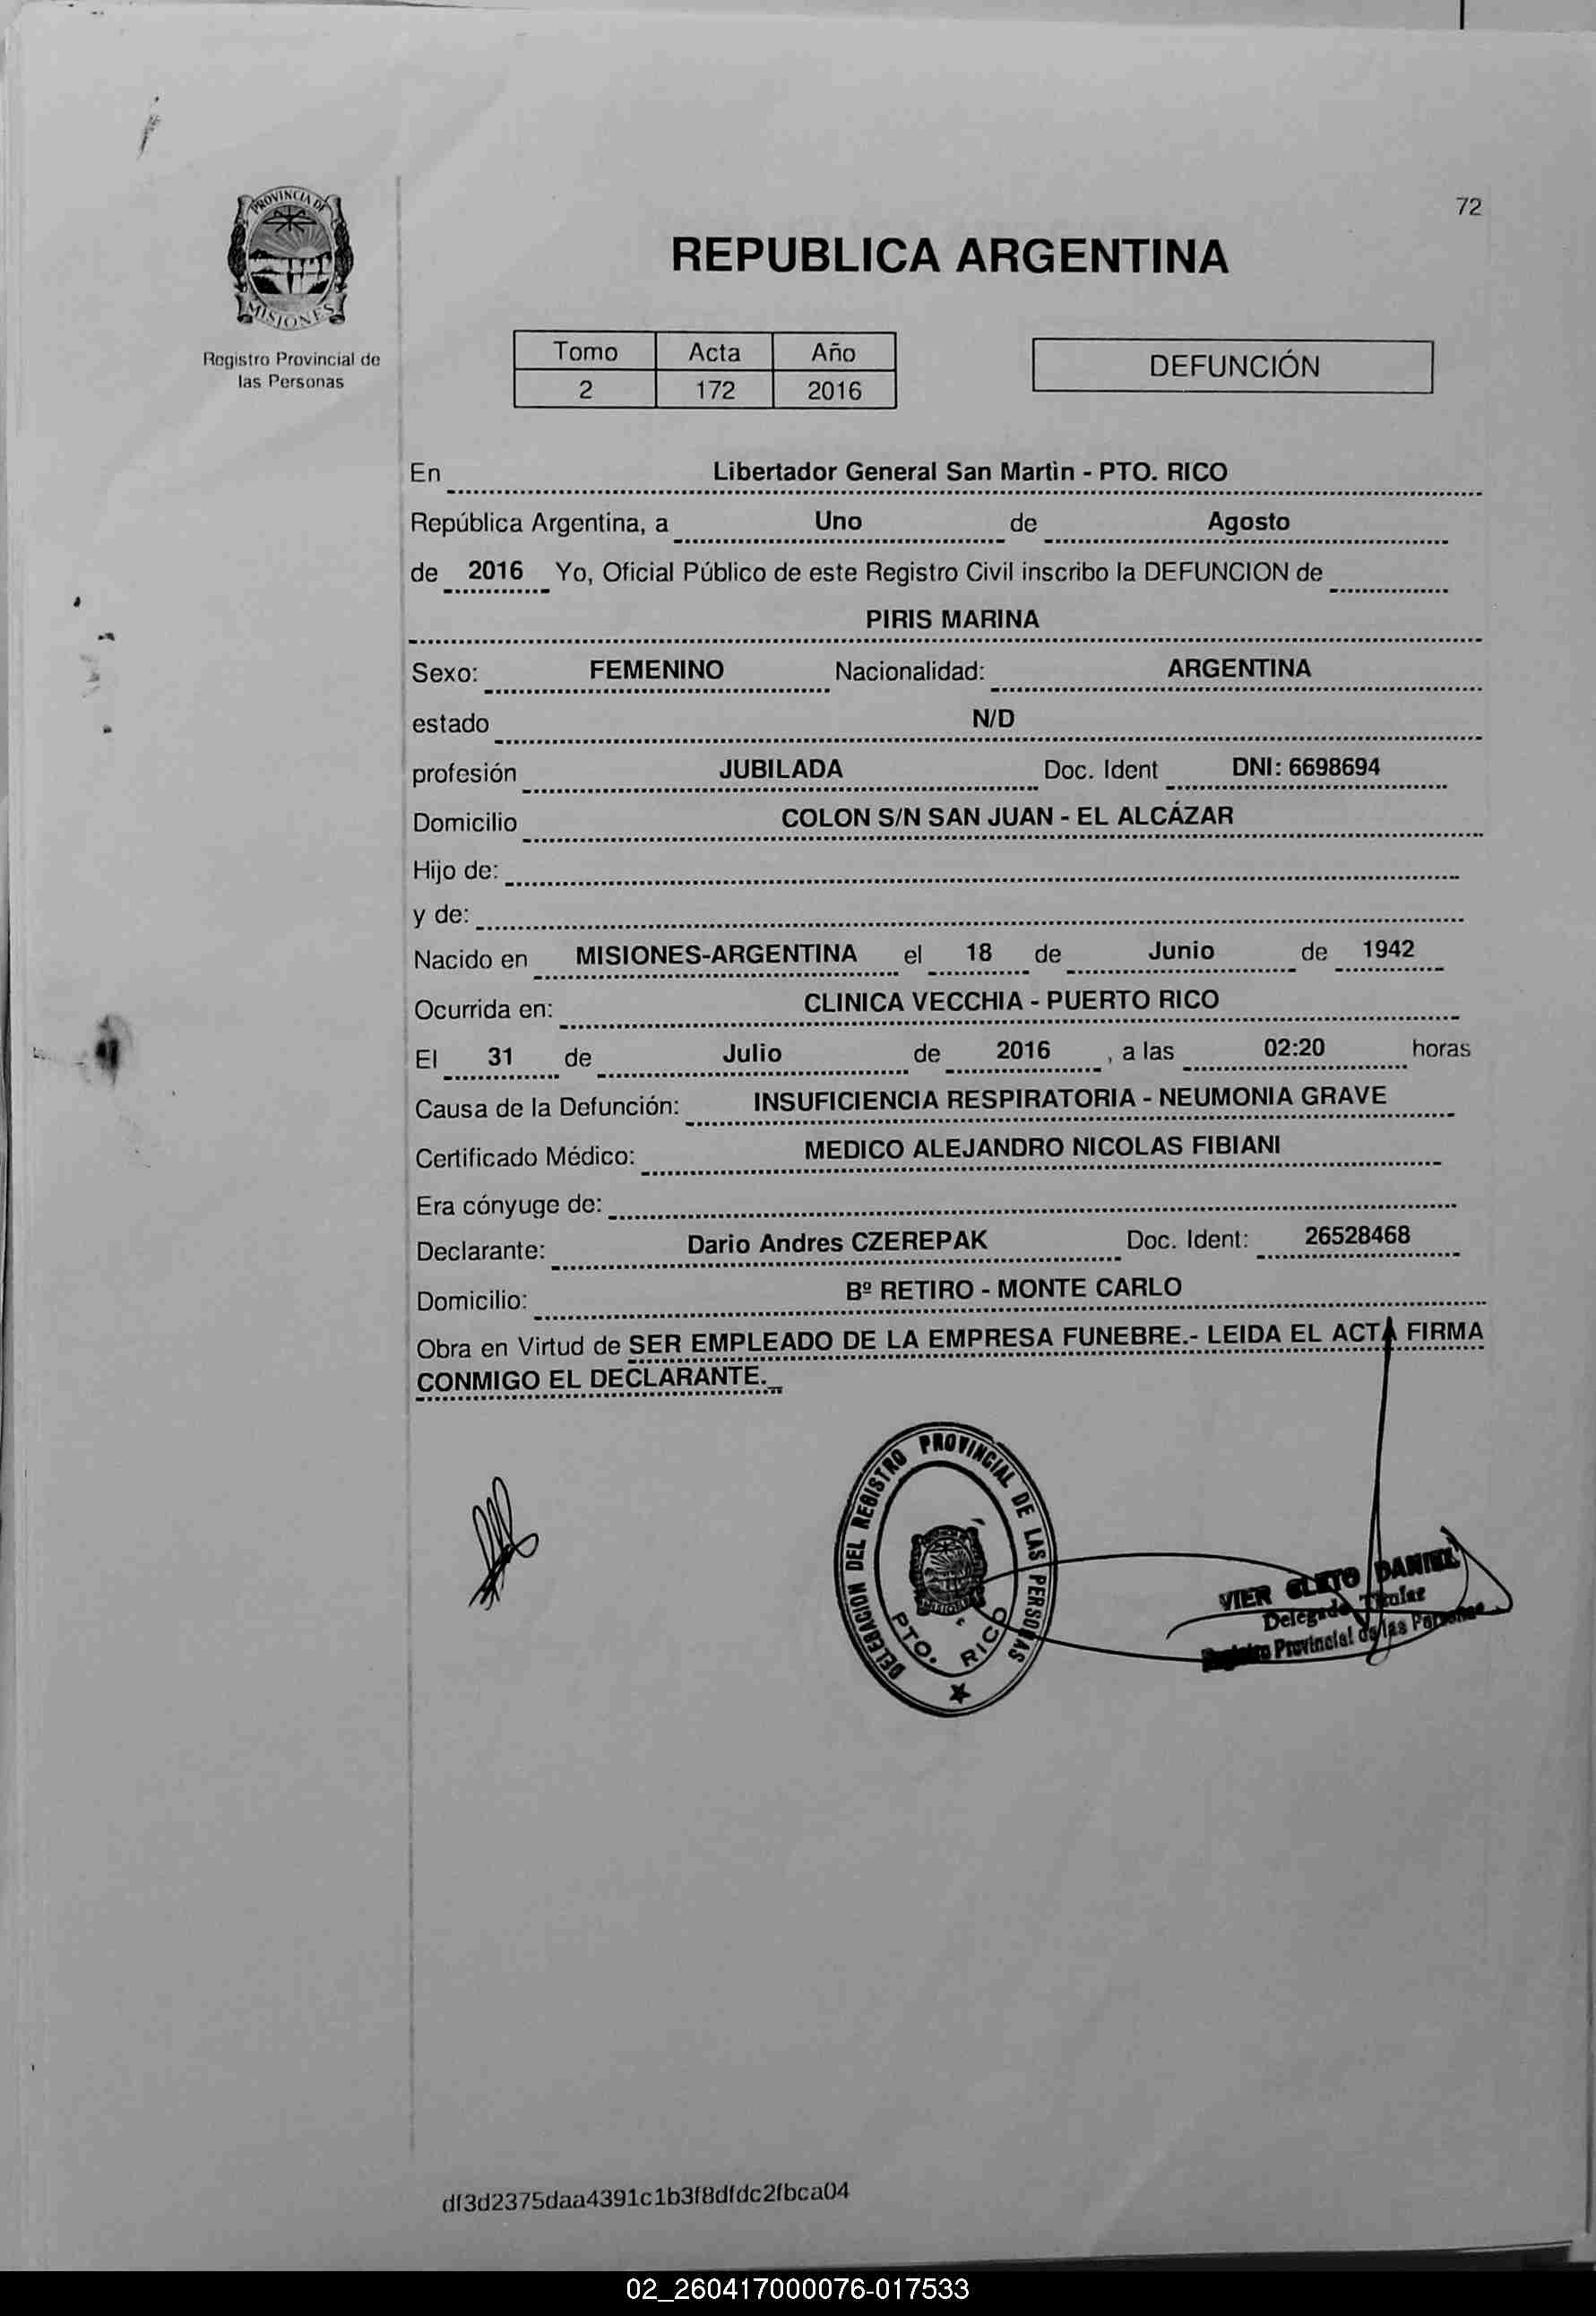 72
PROVINCIA DE
MISIONES
Registro Provincial de
las Personas
REPUBLICA ARGENTINA
Tomo Acta Año
2 172 2016
DEFUNCIÓN
En Libertador General San Martin - PTO. RICO
República Argentina, a Uno de Agosto
de 2016 Yo, Oficial Público de este Registro Civil inscribo la DEFUNCION de
PIRIS MARINA
Sexo: FEMENINO Nacionalidad: ARGENTINA
estado N/D
profesión JUBILADA Doc. Ident DNI: 6698694
Domicilio COLON S/N SAN JUAN - EL ALCÁZAR
Hijo de:
y de:
Nacido en MISIONES-ARGENTINA el 18 de Junio de 1942
Ocurrida en: CLINICA VECCHIA - PUERTO RICO
El 31 de Julio de 2016 , a las 02:20 horas
Causa de la Defunción: INSUFICIENCIA RESPIRATORIA - NEUMONIA GRAVE
Certificado Médico: MEDICO ALEJANDRO NICOLAS FIBIANI
Era cónyuge de:
Declarante: Dario Andres CZEREPAK Doc. Ident: 26528468
Domicilio: Bº RETIRO - MONTE CARLO
Obra en Virtud de SER EMPLEADO DE LA EMPRESA FUNEBRE.- LEIDA EL ACTA FIRMA
CONMIGO EL DECLARANTE._
DELEGACION DEL REGISTRO PROVINCIAL DE LAS PERSONAS
PTO. RICO
VIER CLETO DANIEL
Delegado Titular
Registro Provincial de las Personas
df3d2375daa4391c1b3f8dfdc2fbca04
02_260417000076-017533